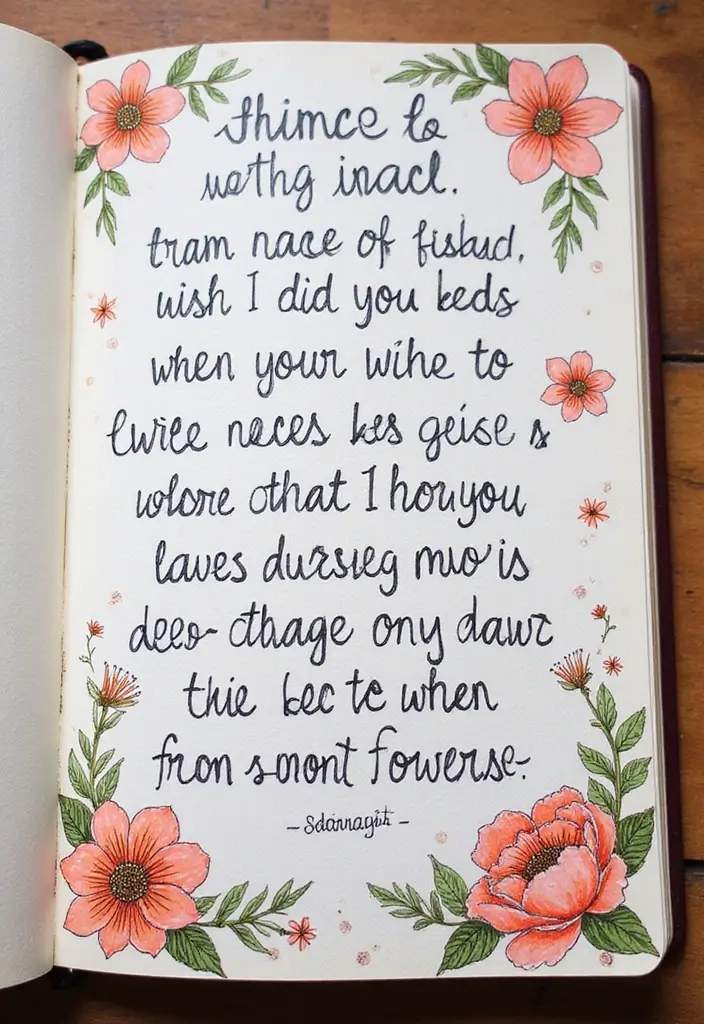 thimce la
wethg inacl.
tram nace of fisbud,
wish I did you beds
when your wihe to
lwice naces kes geise &
wolore othat I houyou
laves dursieg mwo is
deeo- othage ony dawz
thie bec te when
fron s-mont fowerse-
- Sdannagit -